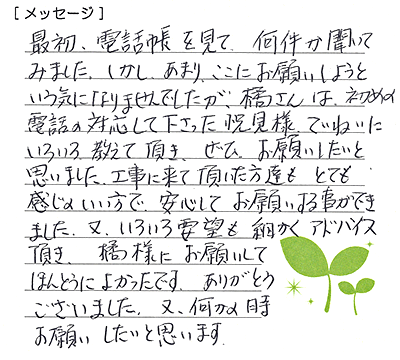 [ メッセージ ]
最初、電話帳を見て、何件か聞いて
みました。しかし、あまり、ここにお願いしようと
いう気になりませんでしたが、橘さんは、初めの
電話の対応して下さった悦見様、ていねいに
いろいろ教えて頂き、ぜひ、お願いしたいと
思いました。工事に来て頂いた方達も とても
感じのいい方で、安心してお願いする事ができ
ました。又、いろいろ要望も細かくアドバイス
頂き、橘様にお願いして
ほんとうによかったです。ありがとう
ございました。又、何かの時
お願いしたいと思います。